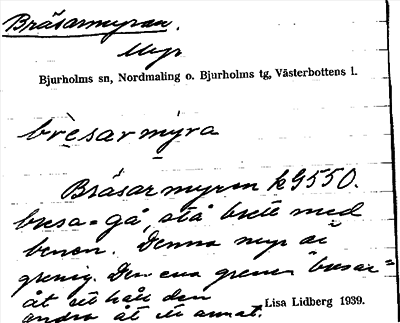 Bräsarmyran.
Myr
Bjurholms sn, Nordmaling o. Bjurholms tg, Västerbottens l.
brèsarmýra
Bräsarmyran k 9550.
bresa = gå, stå brett med
benen. Denna myr är
grenig. Den ena grenen "bresar"
åt ett håll den
andra åt ett annat.
Lisa Lidberg 1939.